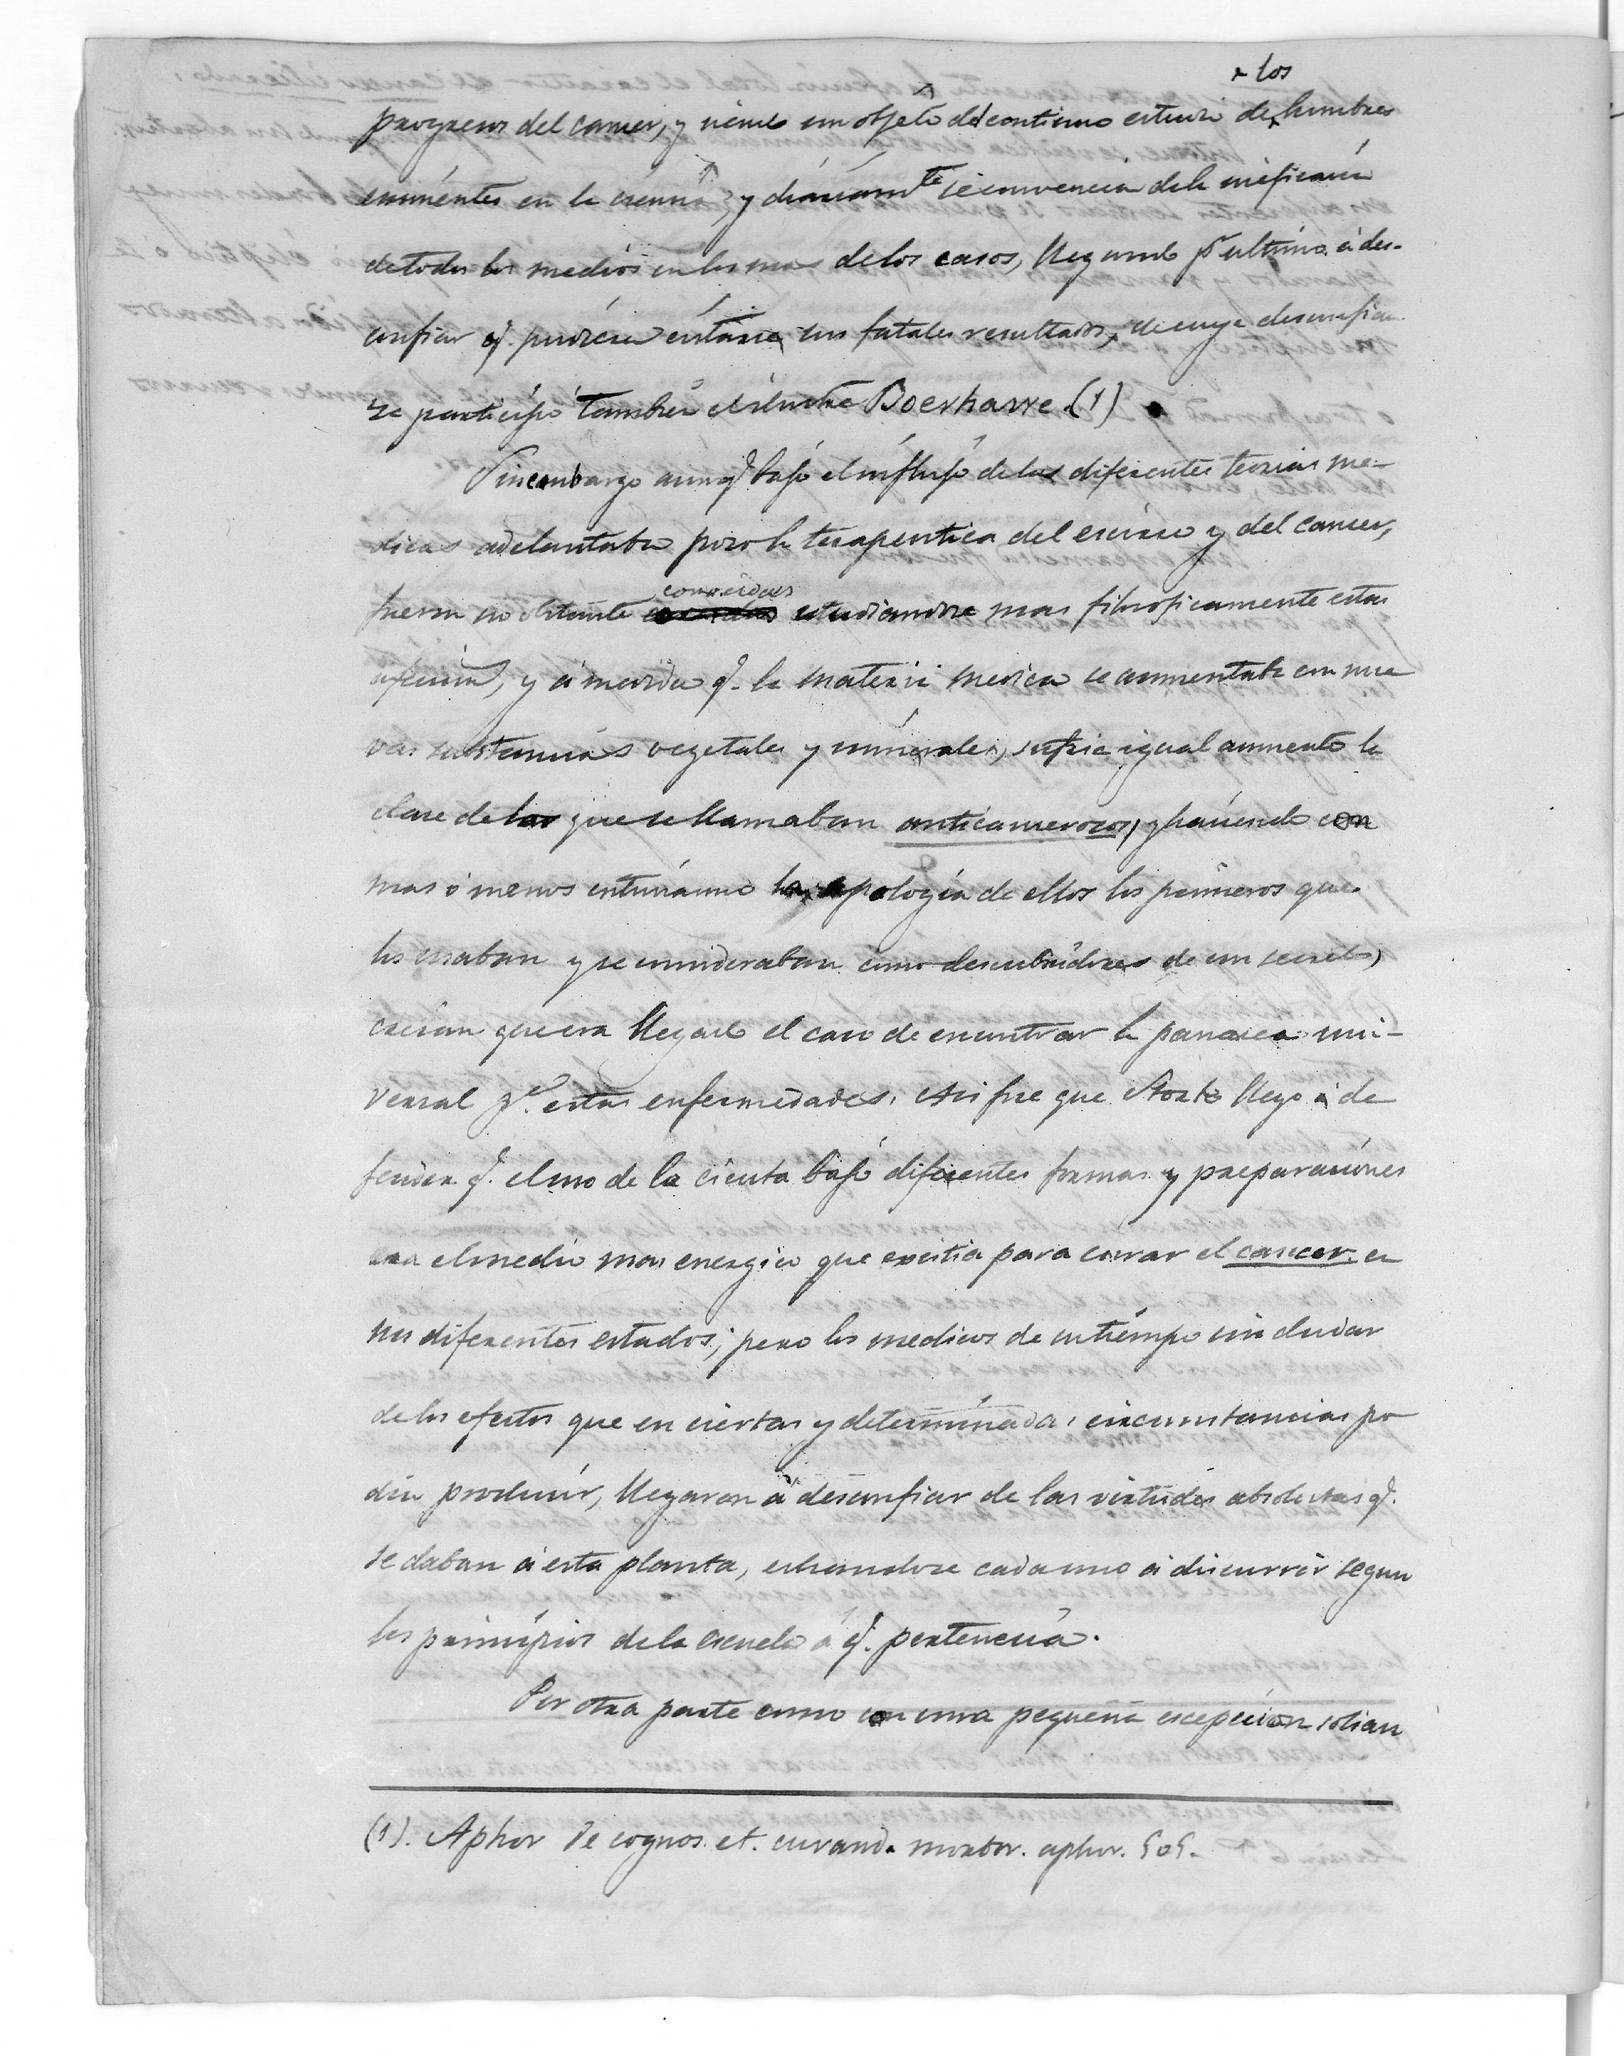 los
progresos del cancer, y siendo un objeto del continuo estudio de hombres
eminentes en la ciencia, y diáriamte se convencian de la ineficacia
de todos los medios en los mas de los casos, llegando pr ultimo á des-
confiar q. pudiesen evitarse sus fatales resultados, de cuya desconfian
za participó tambien el ilustre Boerharre (1)
Sin embargo aunq. bajo el influjo de las diferentes teorias me-
dicas adelantaba poco la terapeutica del escirro y del cancer,
fueron no obstante conocidas estudiandose mas filosoficamente estas
afecciones, y á medida q. la materia medica se aumentaba con nue
vas sustancias vegetales y minerales, sufria igual aumento la
clase de los que se llamaban anticancerosos, y haciendo con
mas ó menos entusiasmo la apología de ellos los primeros que
los usaban y se consideraban como descubridores de un secreto,
creian que era llegado el caso de encontrar la panacea uni-
versal pa. estas enfermedades. Asi fue que Stork llego á de
fender q. el uso de la cicuta bajo diferentes formas y preparaciones
era el medio mas energico que existia para curar el cancer en
sus diferentes estados; pero los medicos de su tiempo sin dudar
de los efectos que en ciertas y determinadas circunstancias po
dia producir, llegaron á desconfiar de las virtudes absolutas q.
se daban á esta planta, echandose cada uno á discurrir segun
los principios de la escuela á q. pertenecia.
Por otra parte como con una pequeña escepcion solian
(1). Aphor de cognos. et. curand. morbor. aphor. 505.